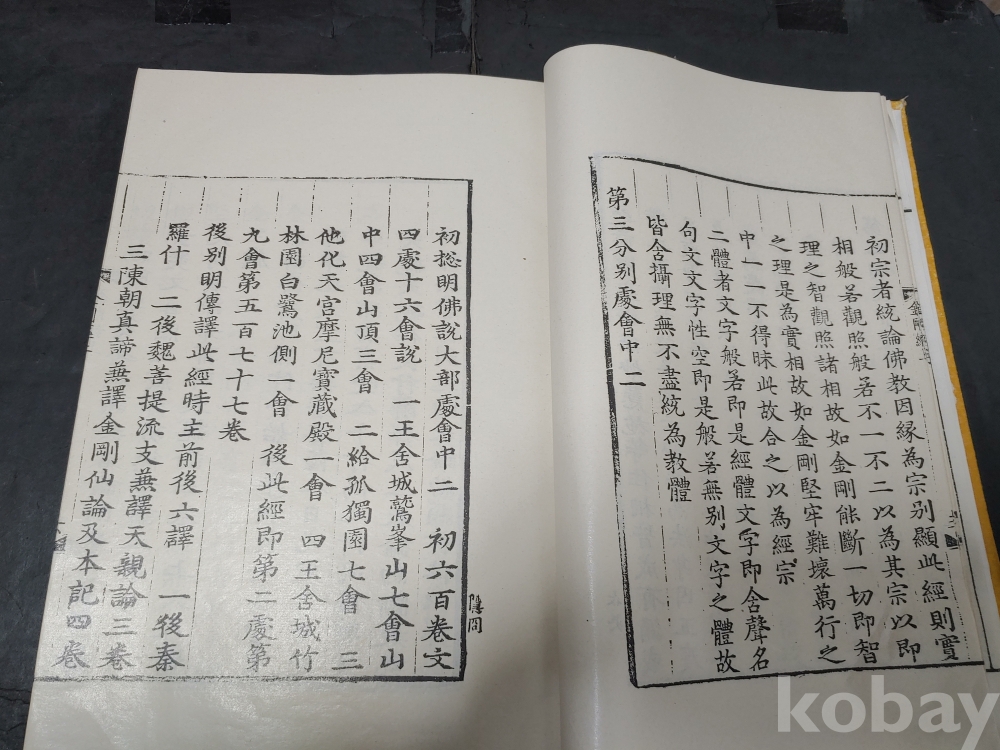 初宗者統論佛教因緣為宗別顯此經則實
相般若觀照般若不一不二以為其宗以即
理之智觀照諸相故如金剛能斷一切即智
之理是為實相故如金剛堅牢難壞萬行之
中一一不得昧此故合之以為經宗
二體者文字般若即是經體文字即含聲名
句文文字性空即是般若無別文字之體故
皆含攝理無不盡統為教體
第三分別處會中二
初摠明佛說大部處會中二 初六百卷文
四處十六會說 一王舍城鷲峯山七會山
中四會山頂三會 二給孤獨園七會 三
他化天宮摩尼寶藏殿一會 四王舍城竹
林園白鷺池側一會 後此經即第二處第
九會第五百七十七卷
後別明傳譯此經時主前後六譯 一後秦
羅什 二後魏菩提流支兼譯天親論三卷
三陳朝真諦兼譯金剛仙論及本記四卷
kobay